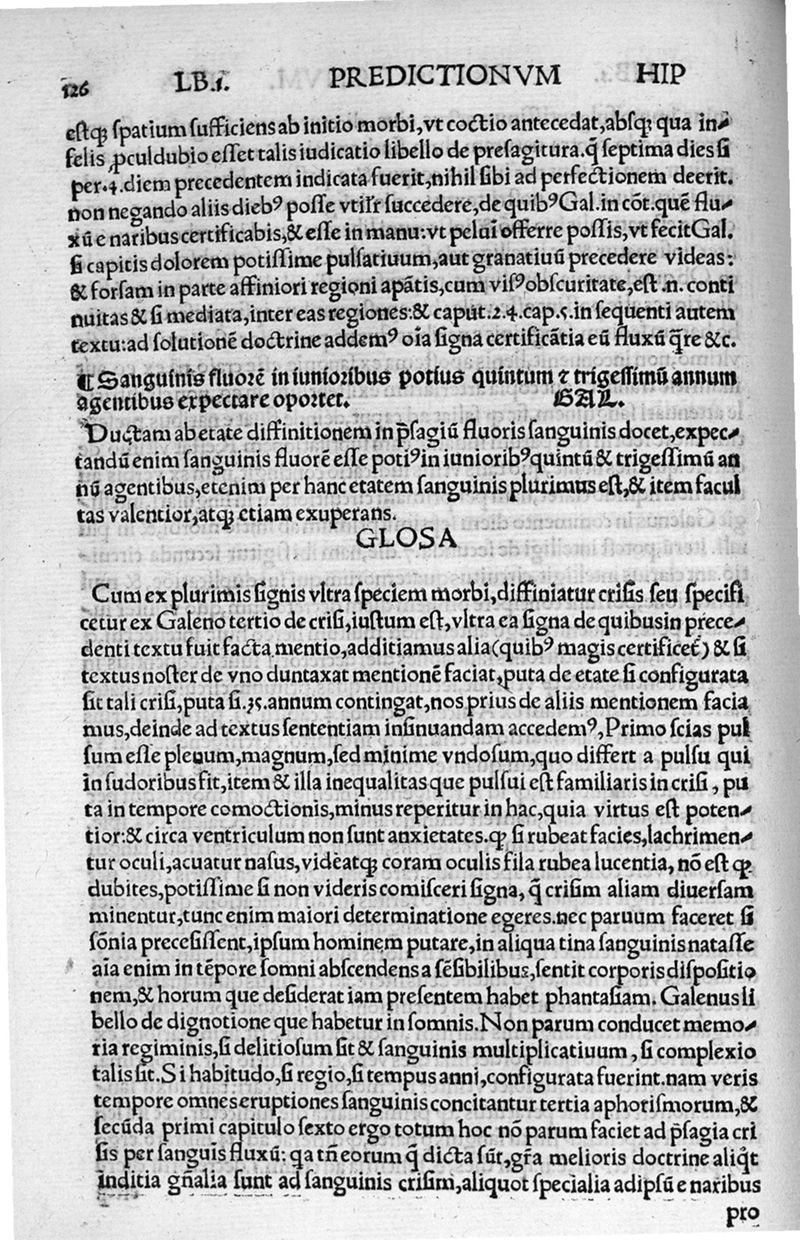 126 LB.1. PREDICTIONVM HIP
estqꝫ spatium sufficiens ab initio morbi,vt coctio antecedat,absqꝫ qua in-
felis ꝓculdubio esset talis iudicatio libello de presagitura.q̃ septima dies si
per.4.diem precedentem indicata fuerit,nihil sibi ad perfectionem deerit.
non negando aliis diebꝰ posse vtilr̃ succedere,de quibꝰ Gal.in cõt.quẽ flu-
xũ e naribus certificabis,& esse in manu:vt peluĩ offerre possis,vt fecit Gal.
si capitis dolorem potissime pulsatiuum,aut granatiuũ precedere videas:
& forsam in parte affiniori regioni apãtis,cum visꝰ obscuritate,est.n.conti
nuitas & si mediata,inter eas regiones:& caput.2.4.cap.5.in sequenti autem
textu:ad solutionẽ doctrine addemꝰ oĩa signa certificãtia eũ fluxũ q̃re &c.
¶ Sanguinis fluorẽ in iunioribus potius quintum ⁊ trigessimũ annum
agentibus expectare oportet. GAL.
Ductam ab etate diffinitionem in p̃sagiũ fluoris sanguinis docet,expec-
tandũ enim sanguinis fluorẽ esse potiꝰ in iunioribꝰ quintũ & trigessimũ an
nũ agentibus,etenim per hanc etatem sanguinis plurimus est,& item facul
tas valentior,atqꝫ etiam exuperans.
GLOSA
Cum ex plurimis signis vltra speciem morbi,diffiniatur crisis seu specifi
cetur ex Galeno tertio de crisi,iustum est,vltra ea signa de quibusin prece-
denti textu fuit facta mentio,additiamus alia(quibꝰ magis certificet̃) & si
textus noster de vno duntaxat mentionẽ faciat,puta de etate si configurata
sit tali crisi,puta si.35.annum contingat,nos prius de aliis mentionem facia
mus,deinde ad textus sententiam insinuandam accedemꝰ,Primo scias pul
sum esse plenum,magnum,sed minime vndosum,quo differt a pulsu qui
in sudoribus fit,item & illa inequalitas que pulsui est familiaris in crisi, pu
ta in tempore comoctionis,minus reperitur in hac,quia virtus est poten-
tior:& circa ventriculum non sunt anxietates.qꝫ si rubeat facies,lachrimen-
tur oculi,acuatur nasus,videatqꝫ coram oculis fila rubea lucentia, nõ est qꝫ
dubites,potissime si non videris comisceri signa,q̃ crisim aliam diuersam
minentur,tunc enim maiori determinatione egeres.nec paruum faceret si
sõnia precesissent,ipsum hominem putare,in aliqua tina sanguinis natasse
aĩa enim in tẽpore somni abscendens a sẽsibilibus,sentit corporis dispositio
nem,& horum que desiderat iam presentem habet phantasiam. Galenus li
bello de dignotione que habetur in somnis.Non parum conducet memo-
ria regiminis,si delitiosum sit & sanguinis multiplicatiuum, si complexio
talis sit.Si habitudo,si regio,si tempus anni,configurata fuerint.nam veris
tempore omnes eruptiones sanguinis concitantur tertia aphorismorum,&
secũda primi capitulo sexto ergo totum hoc nõ parum faciet ad p̃sagia cri
sis per sanguis̃ fluxũ: qa tñ eorum q̃ dicta sũt,gr̃a melioris doctrine aliq̃t
inditia gñalia sunt ad sanguinis crisim,aliquot specialia adipsũ e naribus
pro